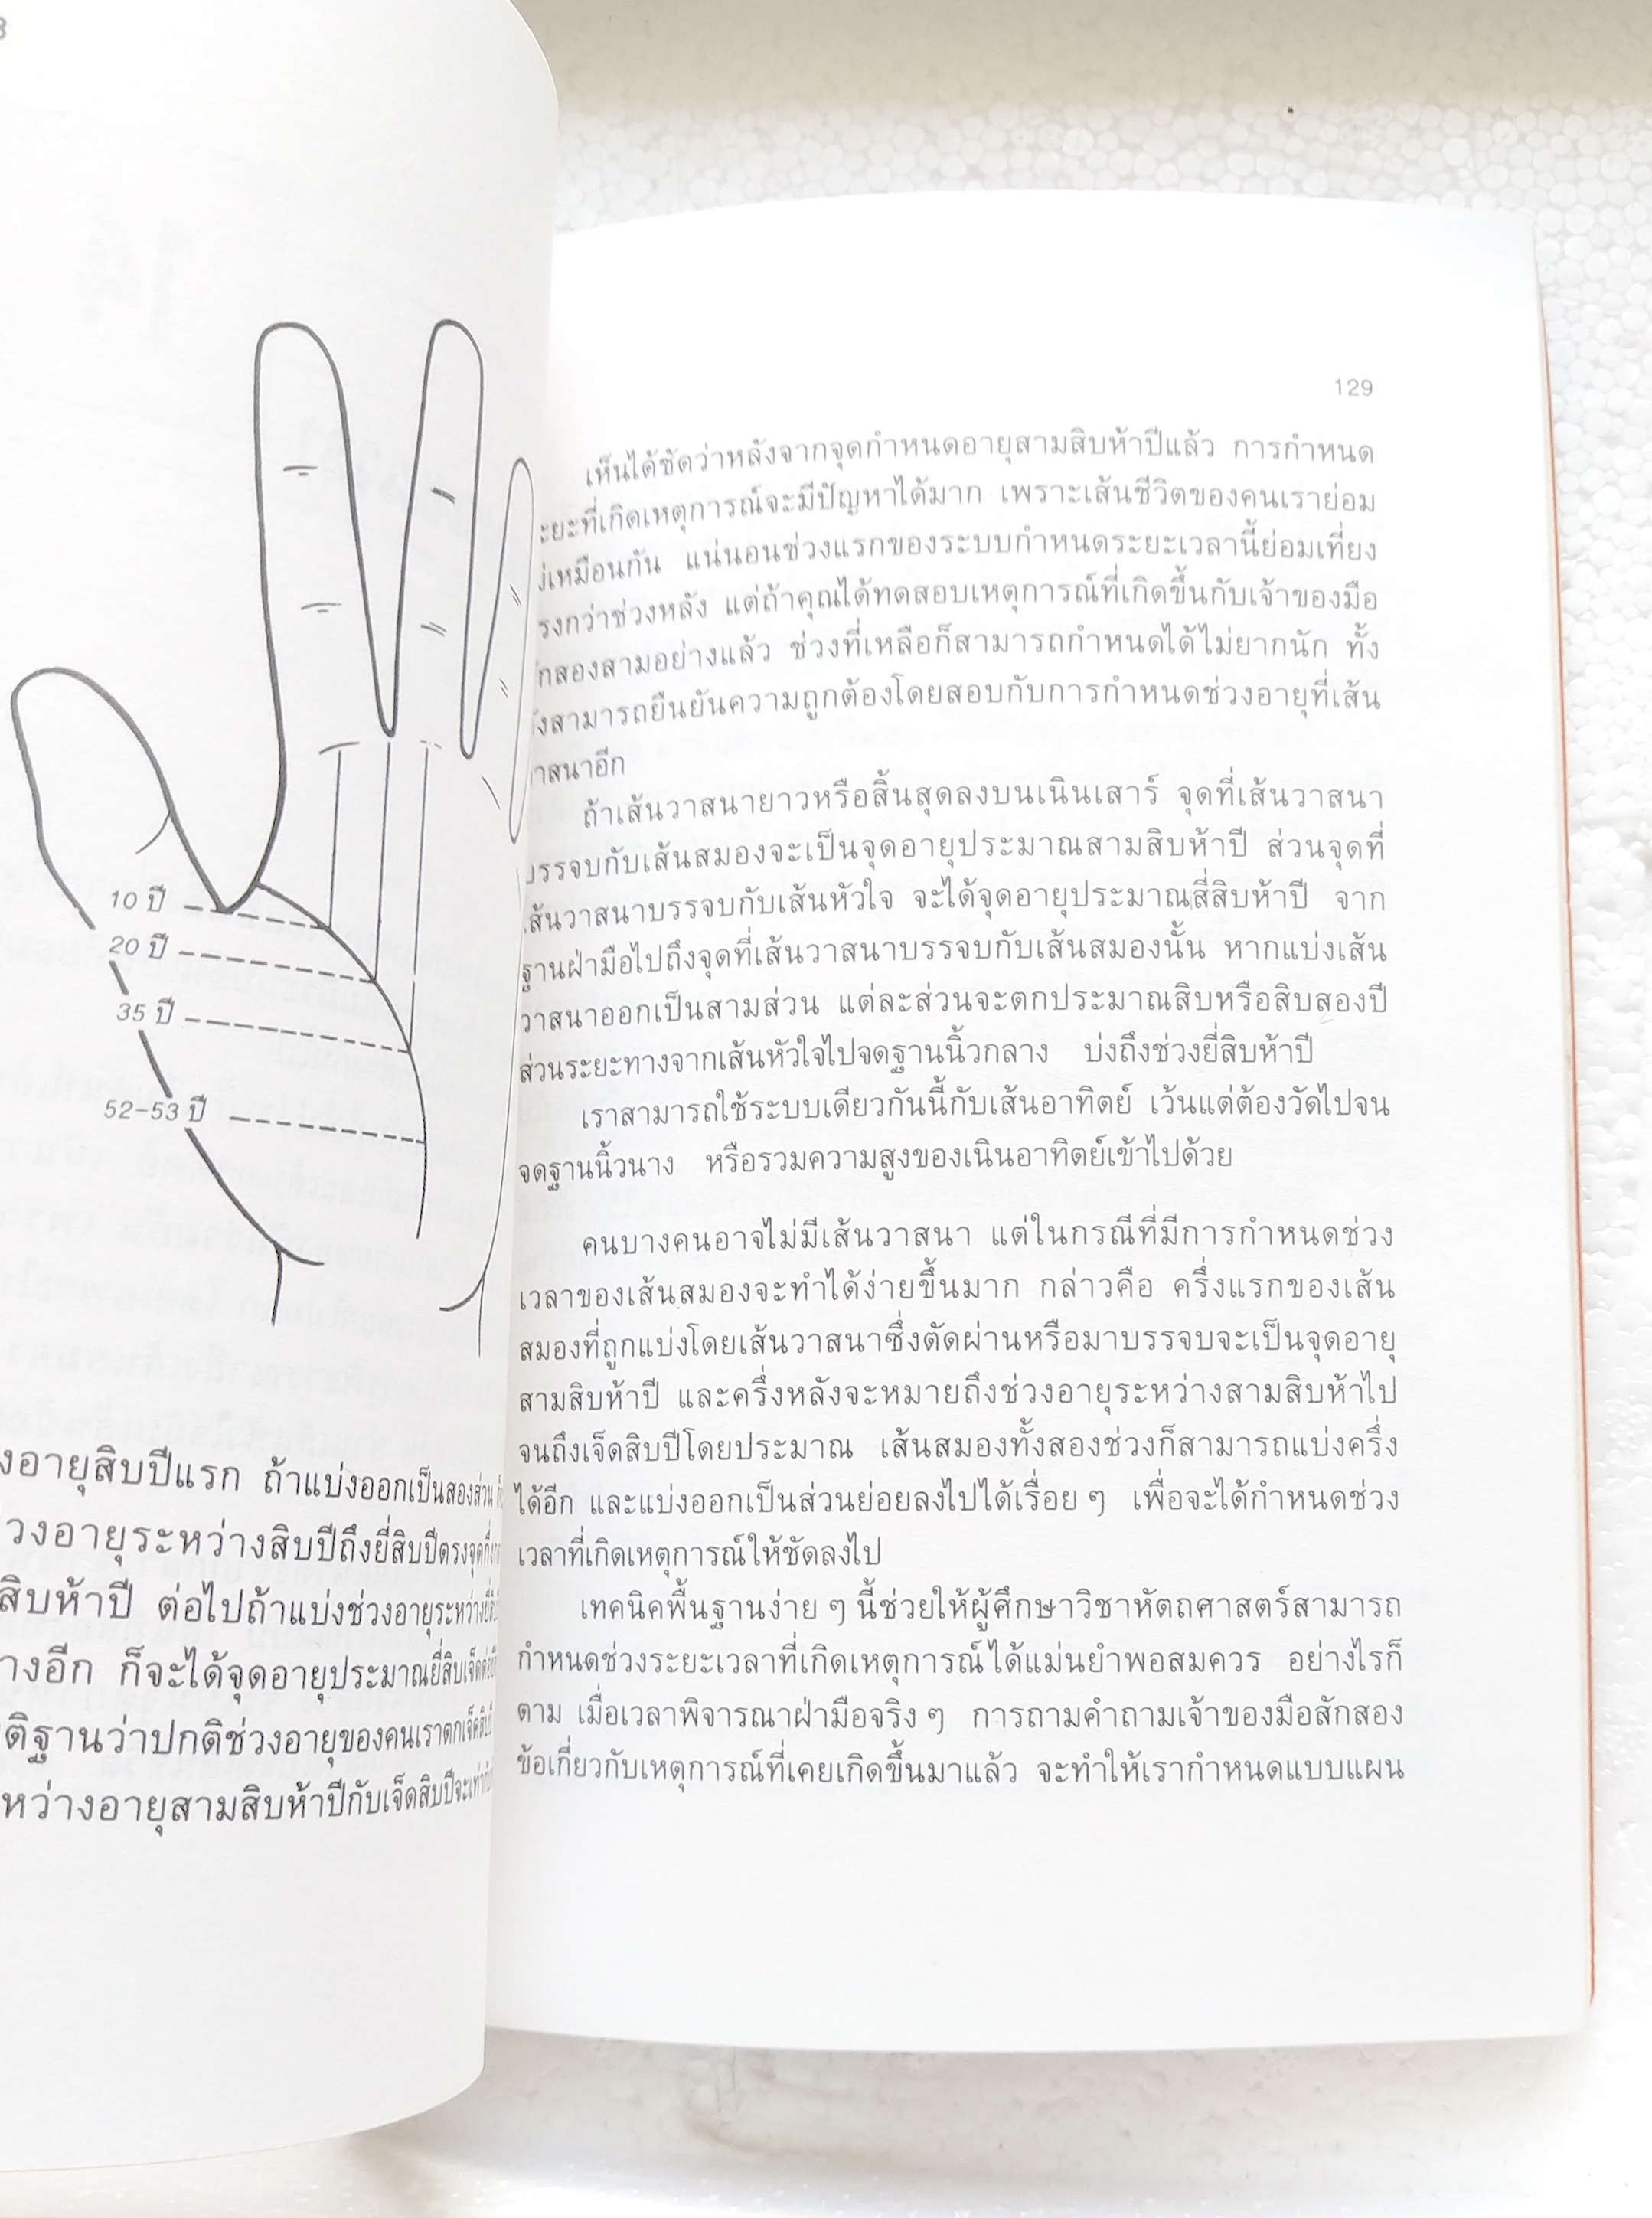 10 ปี
20 ปี
35 ปี
52-53 ปี
งอายุสิบปีแรก ถ้าแบ่งออกเป็นสองส่วน
วงอายุระหว่างสิบปีถึงยี่สิบปีตรงจุดกึ่ง
สิบห้าปี ต่อไปถ้าแบ่งช่วงอายุระหว่าง
างอีก ก็จะได้จุดอายุประมาณยี่สิบเจ็ด
ติฐานว่าปกติช่วงอายุของคนเราตกเจ็ดสิบปี
หว่างอายุสามสิบห้าปีกับเจ็ดสิบปีจะเท่ากับ
129
เห็นได้ชัดว่าหลังจากจุดกำหนดอายุสามสิบห้าปีแล้ว การกำหนด
ะยะที่เกิดเหตุการณ์จะมีปัญหาได้มาก เพราะเส้นชีวิตของคนเราย่อม
เหมือนกัน แน่นอนช่วงแรกของระบบกำหนดระยะเวลานี้ย่อมเที่ยง
รงกว่าช่วงหลัง แต่ถ้าคุณได้ทดสอบเหตุการณ์ที่เกิดขึ้นกับเจ้าของมือ
กสองสามอย่างแล้ว ช่วงที่เหลือก็สามารถกำหนดได้ไม่ยากนัก ทั้ง
ังสามารถยืนยันความถูกต้องโดยสอบกับการกำหนดช่วงอายุที่เส้น
าสนาอีก
ถ้าเส้นวาสนายาวหรือสิ้นสุดลงบนเนินเสาร์ จุดที่เส้นวาสนา
บรรจบกับเส้นสมองจะเป็นจุดอายุประมาณสามสิบห้าปี ส่วนจุดที่
เส้นวาสนาบรรจบกับเส้นหัวใจ จะได้จุดอายุประมาณสี่สิบห้าปี จาก
ฐานฝ่ามือไปถึงจุดที่เส้นวาสนาบรรจบกับเส้นสมองนั้น หากแบ่งเส้น
วาสนาออกเป็นสามส่วน แต่ละส่วนจะตกประมาณสิบหรือสิบสองปี
ส่วนระยะทางจากเส้นหัวใจไปจดฐานนิ้วกลาง บ่งถึงช่วงยี่สิบห้าปี
เราสามารถใช้ระบบเดียวกันนี้กับเส้นอาทิตย์ เว้นแต่ต้องวัดไปจน
จดฐานนิ้วนาง หรือรวมความสูงของเนินอาทิตย์เข้าไปด้วย
คนบางคนอาจไม่มีเส้นวาสนา แต่ในกรณีที่มีการกำหนดช่วง
เวลาของเส้นสมองจะทำได้ง่ายขึ้นมาก กล่าวคือ ครึ่งแรกของเส้น
สมองที่ถูกแบ่งโดยเส้นวาสนาซึ่งตัดผ่านหรือมาบรรจบจะเป็นจุดอายุ
สามสิบห้าปี และครึ่งหลังจะหมายถึงช่วงอายุระหว่างสามสิบห้าไป
จนถึงเจ็ดสิบปีโดยประมาณ เส้นสมองทั้งสองช่วงก็สามารถแบ่งครึ่ง
ได้อีก และแบ่งออกเป็นส่วนย่อยลงไปได้เรื่อย ๆ เพื่อจะได้กำหนดช่วง
เวลาที่เกิดเหตุการณ์ให้ชัดลงไป
เทคนิคพื้นฐานง่าย ๆ นี้ช่วยให้ผู้ศึกษาวิชาหัตถศาสตร์สามารถ
กำหนดช่วงระยะเวลาที่เกิดเหตุการณ์ได้แม่นยำพอสมควร อย่างไรก็
ตาม เมื่อเวลาพิจารณาฝ่ามือจริง ๆ การถามคำถามเจ้าของมือสักสอง
ข้อเกี่ยวกับเหตุการณ์ที่เคยเกิดขึ้นมาแล้ว จะทำให้เรากำหนดแบบแผน